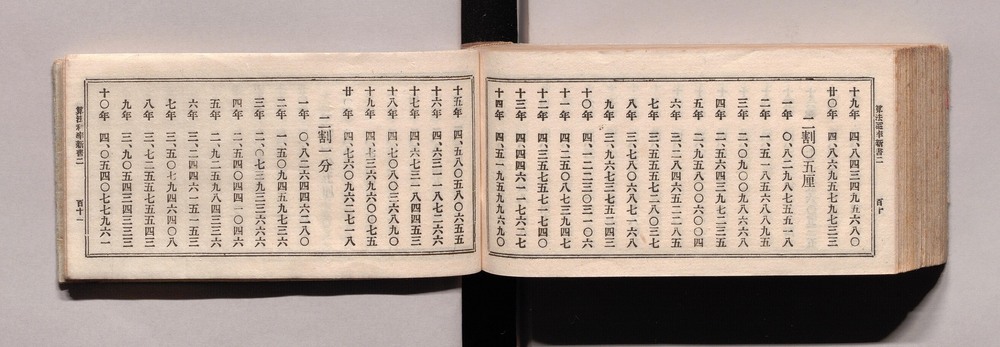 算法利率新書二
百十
十九年 四、八四三四九五六八〇
廿〇年 四、八六九五七九七三三
二割〇五厘
一年 〇、八二九八七五五一八
二年 一、五一八五六八八九五
三年 二、〇九〇〇九八六六八
四年 二、五六四三九七二三五
五年 二、九五八〇〇六〇〇四
六年 三、二八四六五二二八五
七年 三、五五五七二八〇三七
八年 三、七八〇六八七一六八
九年 三、九六七三七五二四三
十〇年 四、一二二三〇三一〇六
十一年 四、二五〇八七三九四七
十二年 四、三五七五七一七四〇
十三年 四、四四六一一七六二七
十四年 四、五一九五九九六九〇
十五年 四、五八〇五八〇六五五
十六年 四、六三一一八七二六六
十七年 四、六七三一八四四五三
十八年 四、七〇八〇三六八九〇
十九年 四、七三六九六〇〇七五
廿〇年 四、七六〇九六二七一八
二割一分
一年 〇、八二六四四六二八〇
二年 一、五〇九四五九七三三
三年 二、〇七三九三三六六六
四年 二、五四〇四四一〇四六
五年 二、九二五九八四三三六
六年 三、二四四六一五一五三
七年 三、五〇七九四六四〇八
八年 三、七二五五七五五四三
九年 三、九〇五四三四三三三
十〇年 四、〇五四〇七七九六一
算法利率新書二
百十一